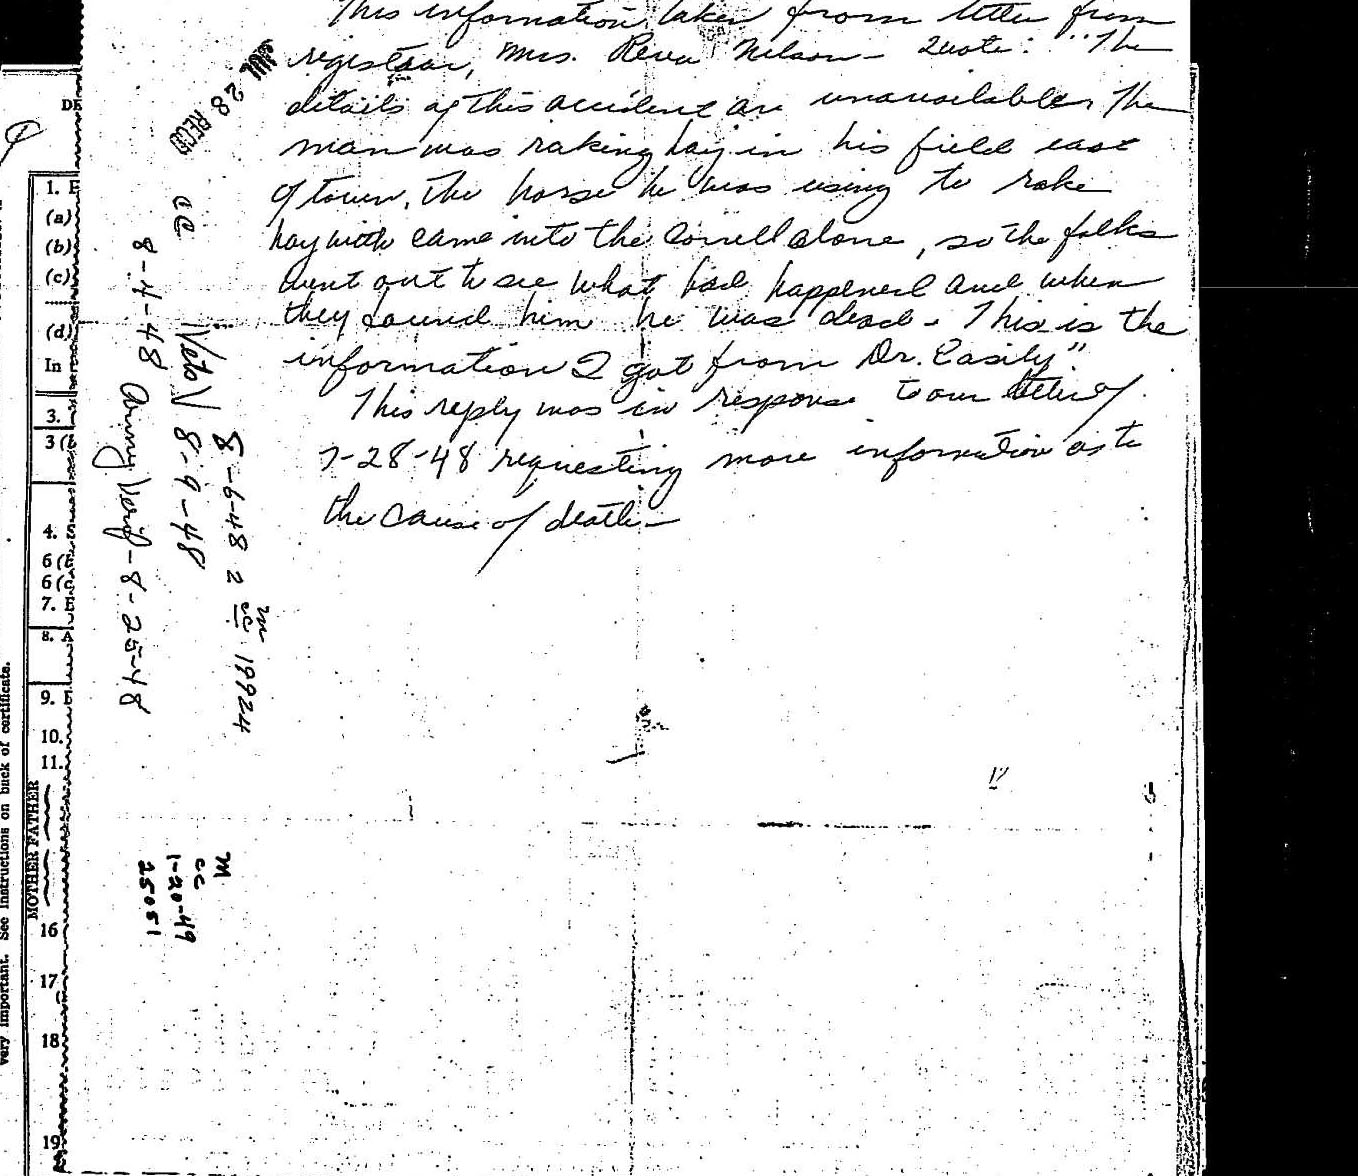 This information taken from letter from
registrar, Mrs. Reva Nelson - Quote: "The
details of this accident are unavailable, The
man was raking hay in his field east
of town, The horse he was using to rake
hay with came into the Correll alone, so the folks
went out to see what had happened and when
they found him he was dead. This is the
information I got from Dr. Easily"
This reply was in response to our letter of
7-28-48 requesting more information as to
the cause of death-
JUL 28 REC'D
cc
8-4-48 Army Verif - 8-25-48
8-9-48
8-6-48 2 cc m 19924
m
cc
1-20-49
25051
DE
1. F
(a)
(b)
(c)
(d)
In
3.
3 (b
4.
6 (b
6 (c
7.
8. A
9.
10.
11.
MOTHER FATHER
16
17
18
19
very important. See instructions on back of certificate.